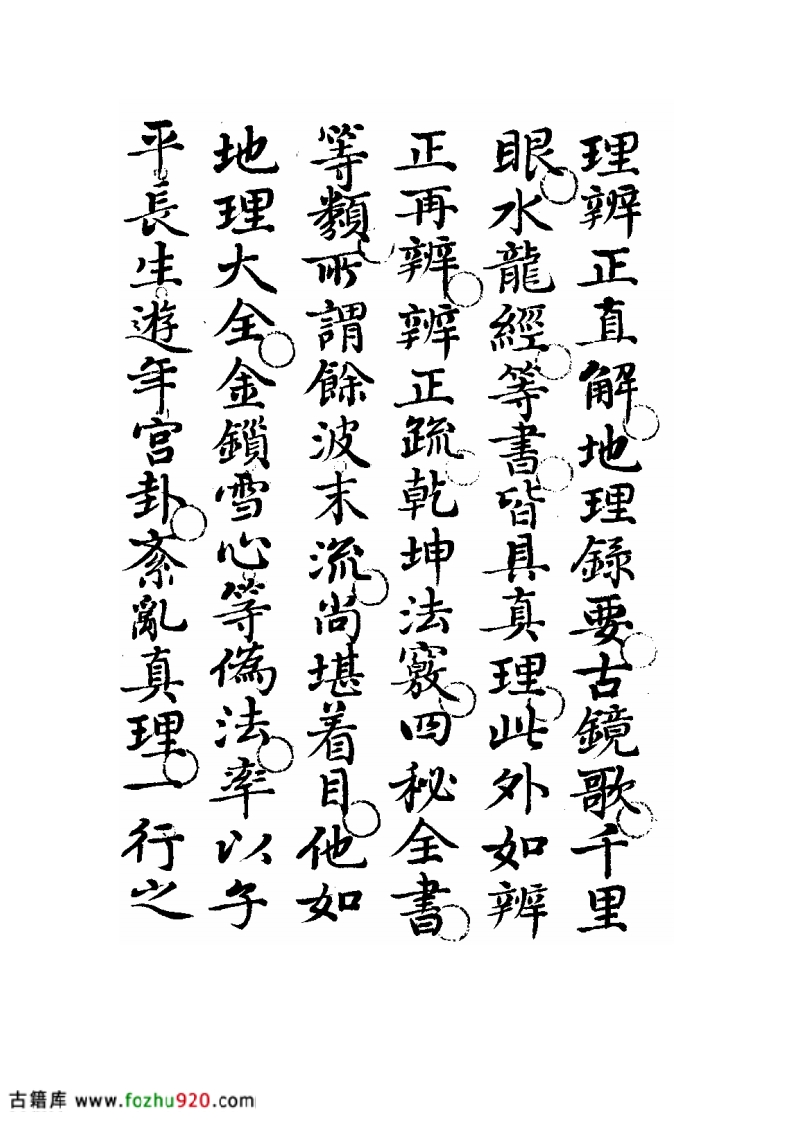 理辨正直解地理録要古鏡歌千里
眼水龍經等書皆具真理此外如辨
正再辨辨正疏乾坤法竅四秘全書
等類所謂餘波末流尚堪着目他如
地理大全金鎖雪心等偽法率以子
平長生遊年宮卦紊亂真理一行之
古籍库 www.fozhu920.com